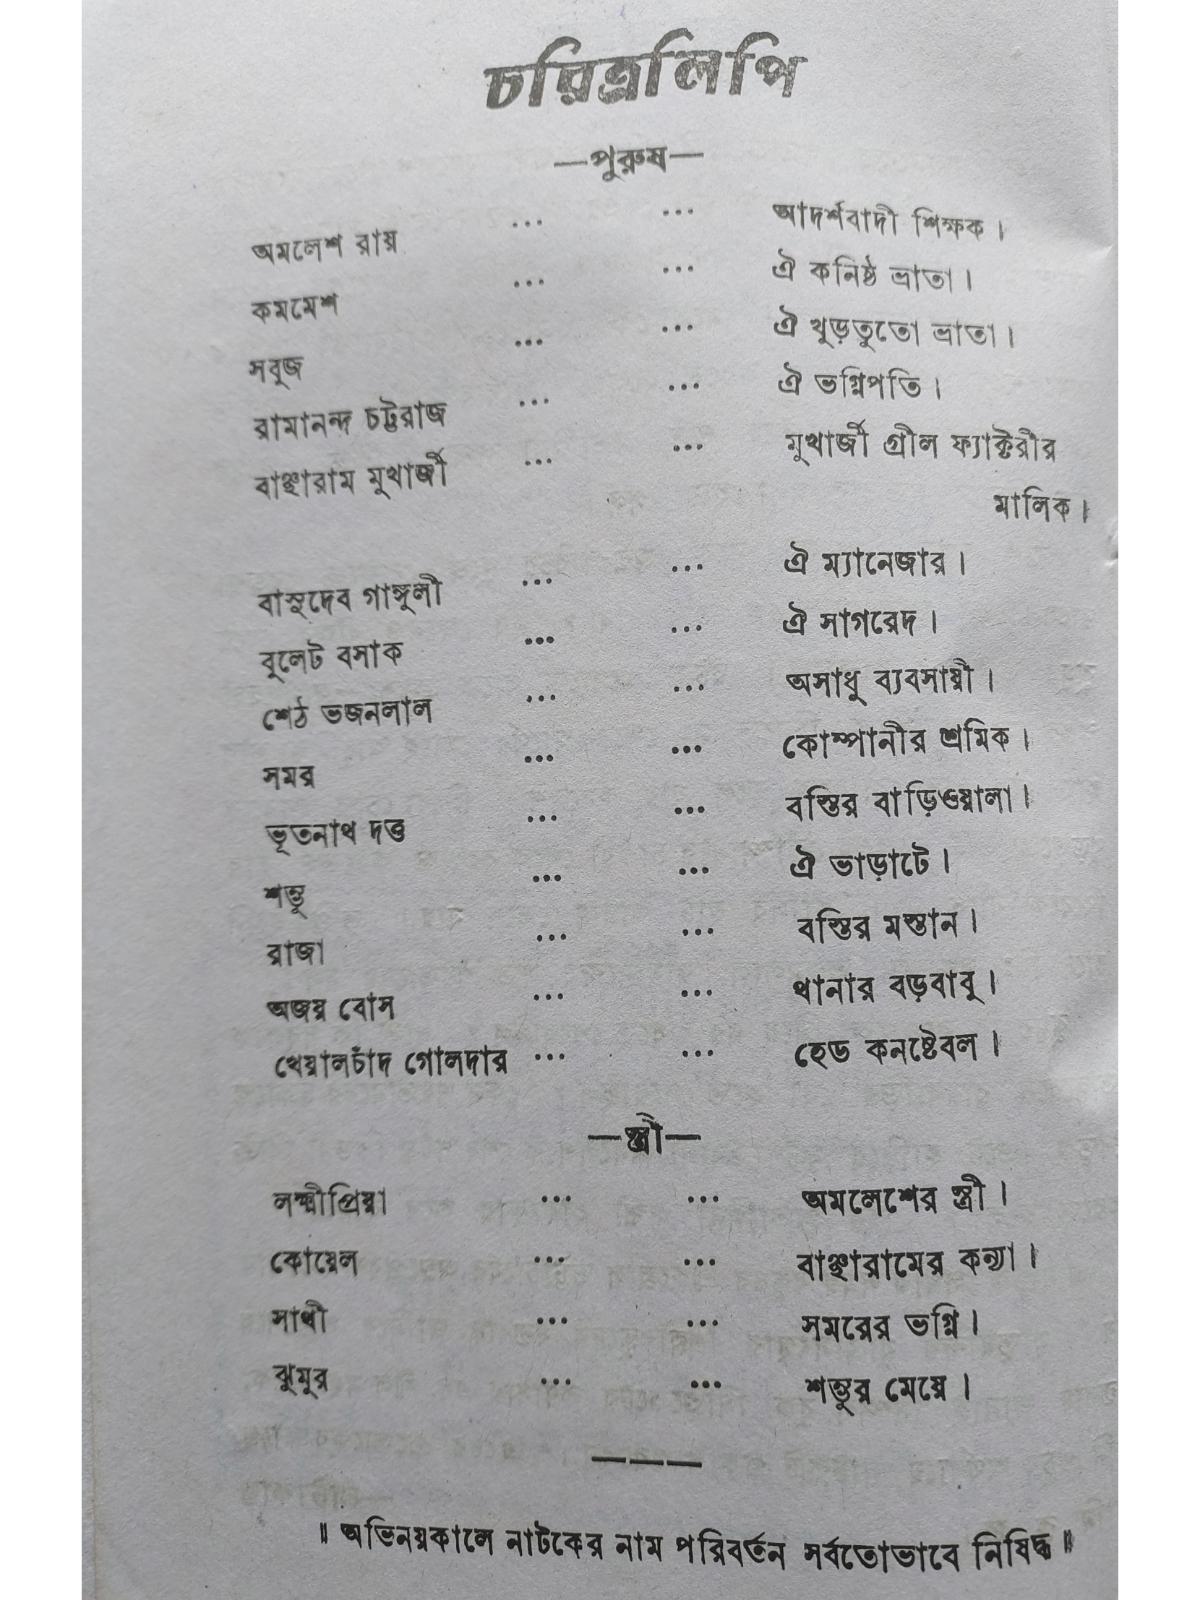 চরিত্রলিপি
—পুরুষ—
অমলেশ রায় ... ... আদর্শবাদী শিক্ষক।
কমমেশ ... ... ঐ কনিষ্ঠ ভ্রাতা।
সবুজ ... ... ঐ খুড়তুতো ভ্রাতা।
রামানন্দ চট্টরাজ ... ... ঐ ভগ্নিপতি।
বাঞ্ছারাম মুখার্জী ... ... মুখার্জী গ্রীল ফ্যাক্টরীর
মালিক।
বাসুদেব গাঙ্গুলী ... ... ঐ ম্যানেজার।
বুলেট বসাক ... ... ঐ সাগরেদ।
শেঠ ভজনলাল ... ... অসাধু ব্যবসায়ী।
সমর ... ... কোম্পানীর শ্রমিক।
ভূতনাথ দত্ত ... ... বস্তির বাড়িওয়ালা।
শম্ভু ... ... ঐ ভাড়াটে।
রাজা ... ... বস্তির মস্তান।
অজয় বোস ... ... থানার বড়বাবু।
খেয়ালচাঁদ গোলদার ... ... হেড কনষ্টেবল।
—স্ত্রী—
লক্ষ্মীপ্রিয়া ... ... অমলেশের স্ত্রী।
কোয়েল ... ... বাঞ্ছারামের কন্যা।
সাথী ... ... সমরের ভগ্নি।
ঝুমুর ... ... শম্ভুর মেয়ে।
———
॥ অভিনয়কালে নাটকের নাম পরিবর্তন সর্বতোভাবে নিষিদ্ধ ॥